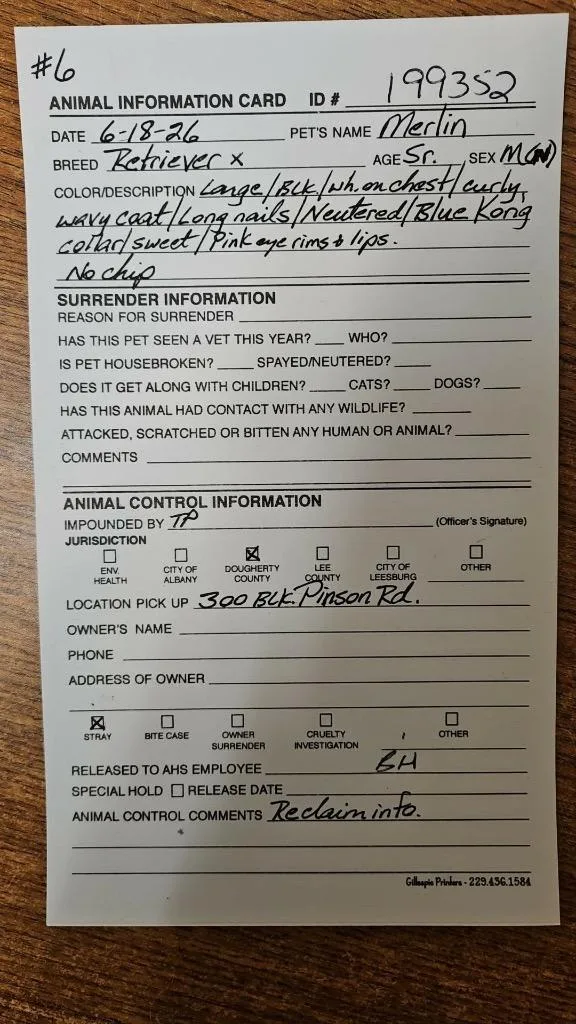 #6
ANIMAL INFORMATION CARD ID # 199352
DATE 6-18-26 PET'S NAME Merlin
BREED Retriever x AGE Sr. SEX M(N)
COLOR/DESCRIPTION Large/BLK/wh. on chest/curly,
wavy coat/Long nails/Neutered/Blue Kong
collar/sweet/Pink eye rims & lips.
No chip
SURRENDER INFORMATION
REASON FOR SURRENDER
HAS THIS PET SEEN A VET THIS YEAR? WHO?
IS PET HOUSEBROKEN? SPAYED/NEUTERED?
DOES IT GET ALONG WITH CHILDREN? CATS? DOGS?
HAS THIS ANIMAL HAD CONTACT WITH ANY WILDLIFE?
ATTACKED, SCRATCHED OR BITTEN ANY HUMAN OR ANIMAL?
COMMENTS
ANIMAL CONTROL INFORMATION
IMPOUNDED BY TP (Officer's Signature)
JURISDICTION
ENV. HEALTH CITY OF ALBANY DOUGHERTY COUNTY LEE COUNTY CITY OF LEESBURG OTHER
LOCATION PICK UP 300 BLK. Pinson Rd.
OWNER'S NAME
PHONE
ADDRESS OF OWNER
STRAY BITE CASE OWNER SURRENDER CRUELTY INVESTIGATION OTHER
RELEASED TO AHS EMPLOYEE BH
SPECIAL HOLD RELEASE DATE
ANIMAL CONTROL COMMENTS Reclaim info.
Gillespie Printers - 229.436.1584